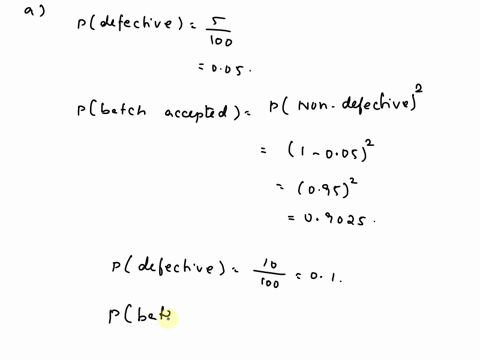 a)
P(defective) = 5/100
= 0.05.
P(batch accepted) = P(Non-defective)²
= (1-0.05)²
= (0.95)²
= 0.9025.
P(defective) = 10/100 = 0.1.
P(bat